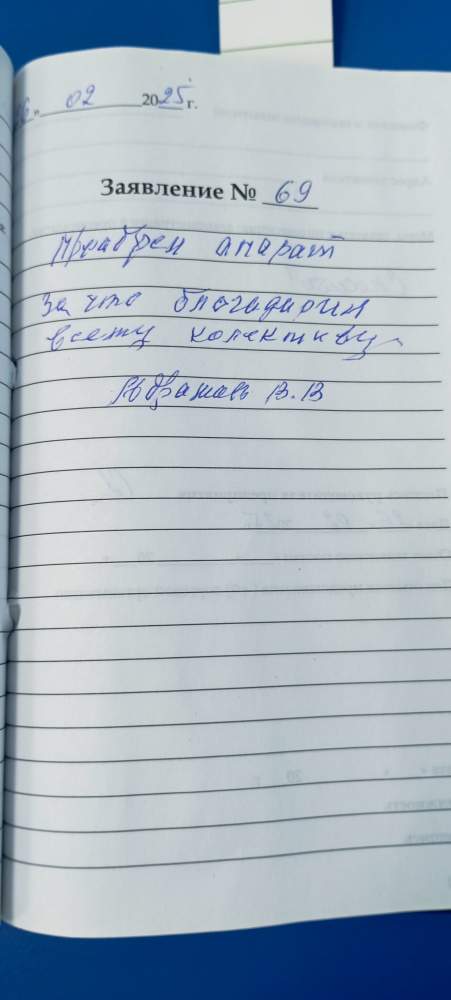 26 " 02 2025 г.
Заявление № 69
Приабрен апарат
За что благадарим
всему колективу
В.В